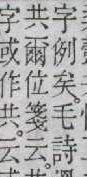 字例矣。毛詩
共爾位箋云。共
字或作共。云